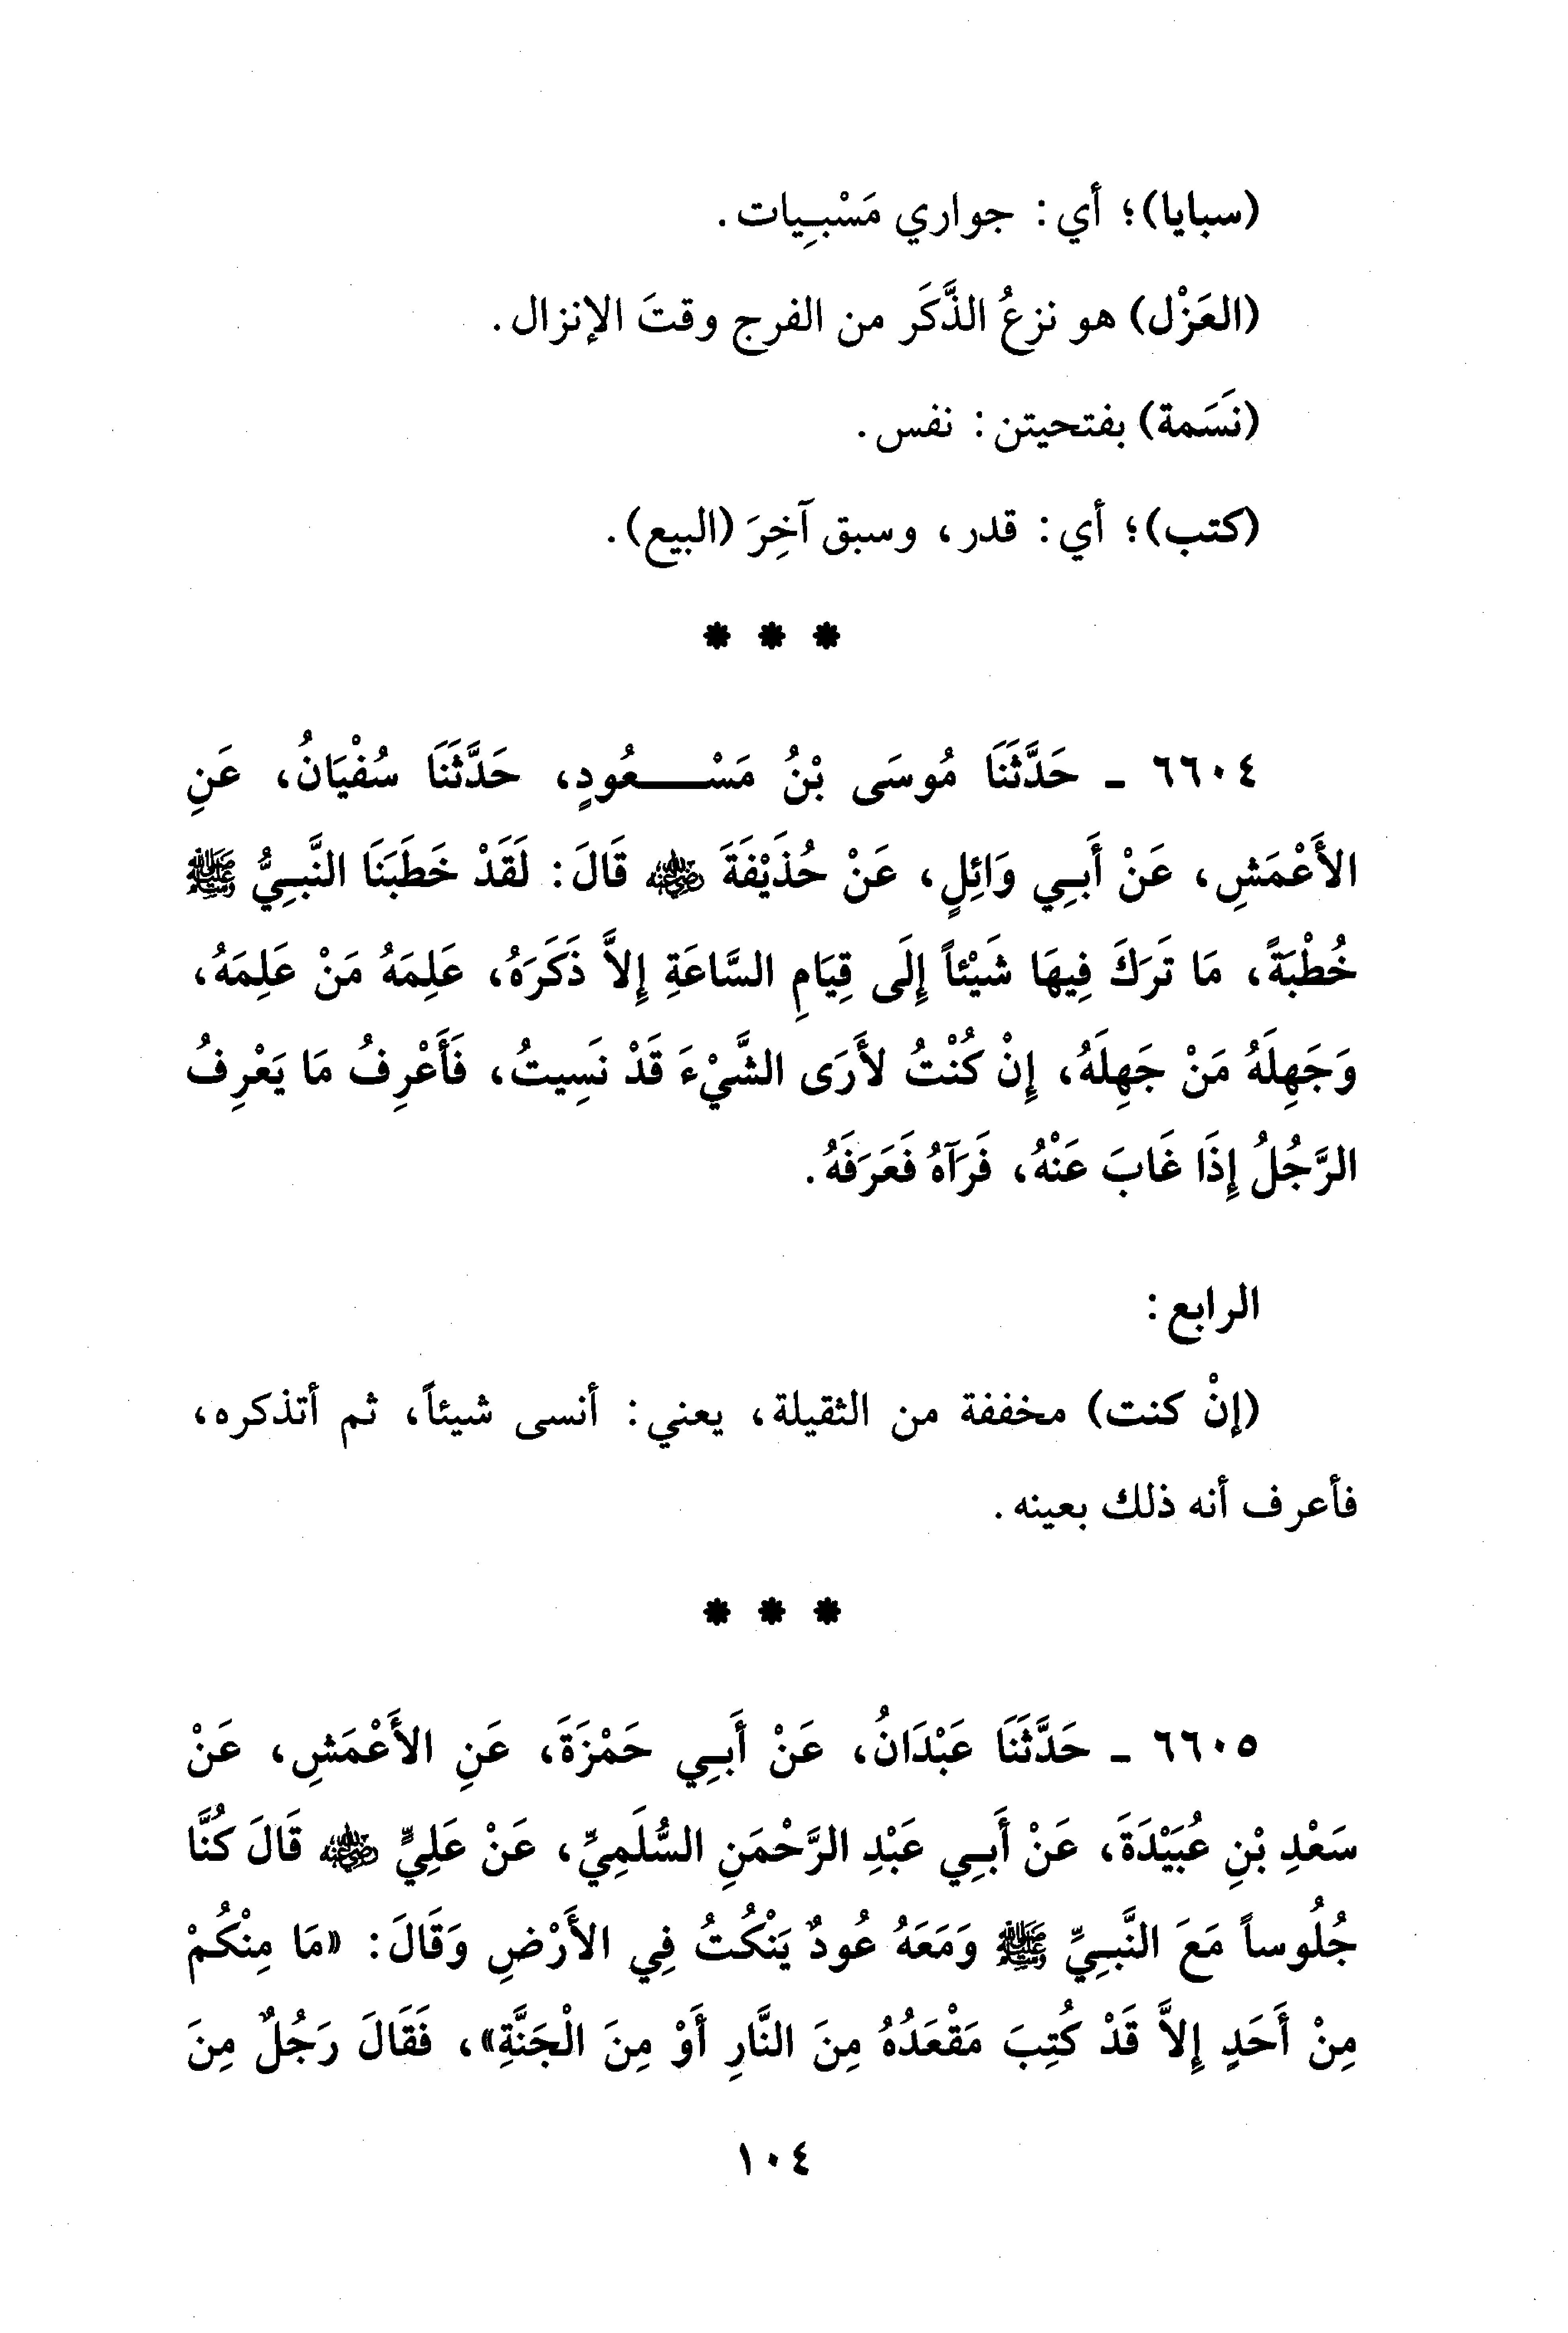 (سبايا)؛ أي: جواري مَسْبِيات.
(العَزْل) هو نزعُ الذَّكَر من الفرج وقتَ الإنزال.
(نَسَمة) بفتحيتن: نفس.
(كتب)؛ أي: قدر، وسبق آخِرَ (البيع).
* * *
٦٦٠٤ - حَدَّثَنَا مُوسَى بْنُ مَسْـــعُودٍ، حَدَّثَنَا سُفْيَانُ، عَنِ
الأَعْمَشِ، عَنْ أَبِي وَائِلٍ، عَنْ حُذَيْفَةَ ﵁ قَالَ: لَقَدْ خَطَبَنَا النَّبِيُّ ﷺ
خُطْبَةً، مَا تَرَكَ فِيهَا شَيْئاً إِلَى قِيَامِ السَّاعَةِ إِلاَّ ذَكَرَهُ، عَلِمَهُ مَنْ عَلِمَهُ،
وَجَهِلَهُ مَنْ جَهِلَهُ، إِنْ كُنْتُ لأَرَى الشَّيْءَ قَدْ نَسِيتُ، فَأَعْرِفُ مَا يَعْرِفُ
الرَّجُلُ إِذَا غَابَ عَنْهُ، فَرَآهُ فَعَرَفَهُ.
الرابع:
(إنْ كنت) مخففة من الثقيلة، يعني: أنسى شيئاً، ثم أتذكره،
فأعرف أنه ذلك بعينه.
* * *
٦٦٠٥ - حَدَّثَنَا عَبْدَانُ، عَنْ أَبِي حَمْزَةَ، عَنِ الأَعْمَشِ، عَنْ
سَعْدِ بْنِ عُبَيْدَةَ، عَنْ أَبِي عَبْدِ الرَّحْمَنِ السُّلَمِيِّ، عَنْ عَلِيٍّ ﵁ قَالَ كُنَّا
جُلُوساً مَعَ النَّبِيِّ ﷺ وَمَعَهُ عُودٌ يَنْكُتُ فِي الأَرْضِ وَقَالَ: «مَا مِنْكُمْ
مِنْ أَحَدٍ إِلاَّ قَدْ كُتِبَ مَقْعَدُهُ مِنَ النَّارِ أَوْ مِنَ الْجَنَّةِ»، فَقَالَ رَجُلٌ مِنَ
١٠٤